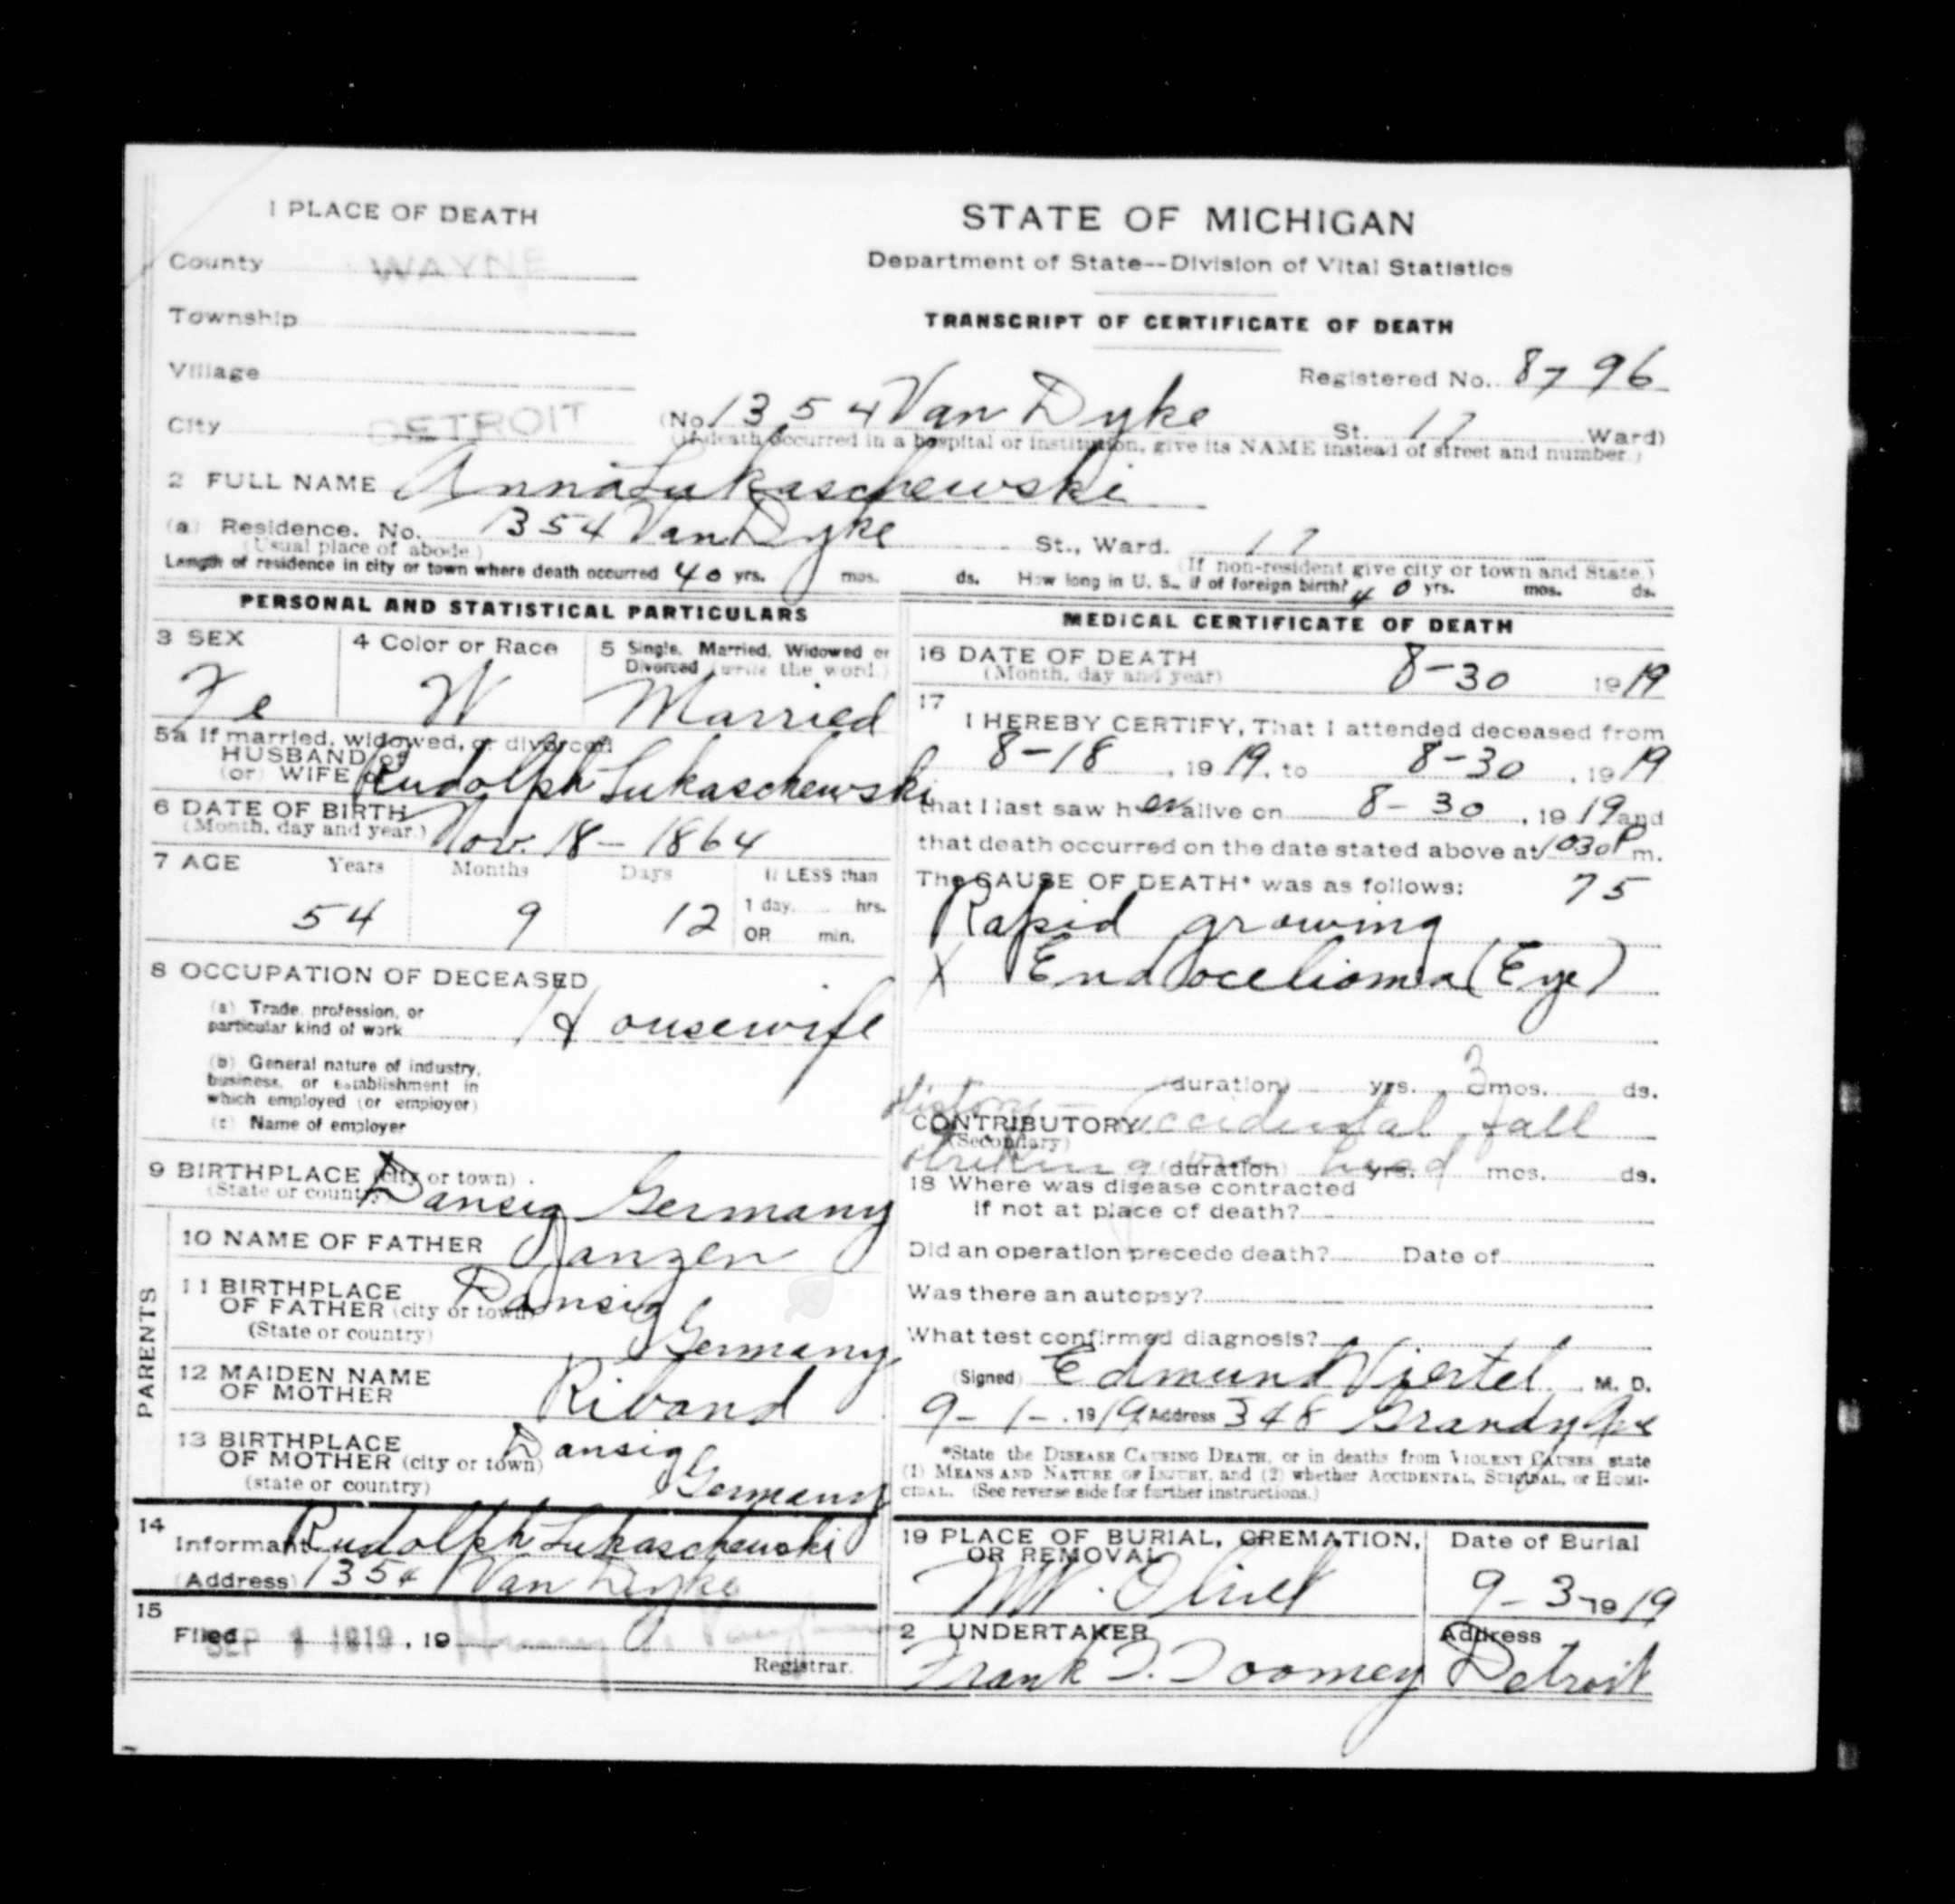 1 PLACE OF DEATH
STATE OF MICHIGAN
County WAYNE
Department of State--Division of Vital Statistics
Township
TRANSCRIPT OF CERTIFICATE OF DEATH
Village
Registered No. 8796
City DETROIT (No. 1354 Van Dyke St. 17 Ward)
(If death occurred in a hospital or institution, give its NAME instead of street and number.)
2 FULL NAME Anna Lukaschewski
(a) Residence. No. 1354 Van Dyke St., Ward. 17
(Usual place of abode.) (If non-resident give city or town and State.)
Length of residence in city or town where death occurred 40 yrs. mos. ds. How long in U. S., if of foreign birth? 40 yrs. mos. ds.
PERSONAL AND STATISTICAL PARTICULARS
3 SEX 4 Color or Race 5 Single, Married, Widowed or
Divorced (write the word.)
Fe W Married
5a If married, widowed, or divorced
HUSBAND of
(or) WIFE of Rudolph Lukaschewski
6 DATE OF BIRTH
(Month, day and year.) Nov. 18 - 1864
7 AGE Years Months Days If LESS than
54 9 12 1 day, hrs.
OR min.
8 OCCUPATION OF DECEASED
(a) Trade, profession, or
particular kind of work Housewife
(b) General nature of industry,
business, or establishment in
which employed (or employer)
(c) Name of employer
9 BIRTHPLACE (city or town)
(State or country) Dansig Germany
PARENTS
10 NAME OF FATHER Janzen
11 BIRTHPLACE
OF FATHER (city or town) Dansig
(State or country) Germany
12 MAIDEN NAME
OF MOTHER Riband
13 BIRTHPLACE
OF MOTHER (city or town) Dansig
(state or country) Germany
14
Informant Rudolph Lukaschewski
(Address) 1354 Van Dyke
15
Filed SEP 1 1919, 19
Registrar.
MEDICAL CERTIFICATE OF DEATH
16 DATE OF DEATH
(Month, day and year) 8-30 1919
17
I HEREBY CERTIFY, That I attended deceased from
8-18, 1919, to 8-30, 1919
that I last saw her alive on 8-30, 1919 and
that death occurred on the date stated above at 1030 P m.
The CAUSE OF DEATH* was as follows: 75
Rapid growing
X Endocelioma (Eye)
(duration) yrs. 3 mos. ds.
History - accidental fall
CONTRIBUTORY
(Secondary)
striking head
(duration) yrs. mos. ds.
18 Where was disease contracted
if not at place of death?
Did an operation precede death? Date of
Was there an autopsy?
What test confirmed diagnosis?
(Signed) Edmund Viertel, M. D.
9-1-, 1919 Address 348 Grandy Ave
*State the DISEASE CAUSING DEATH, or in deaths from VIOLENT CAUSES, state
(1) MEANS AND NATURE OF INJURY, and (2) whether ACCIDENTAL, SUICIDAL, or HOMI-
CIDAL. (See reverse side for further instructions.)
19 PLACE OF BURIAL, CREMATION,
OR REMOVAL
Mt. Olivet
Date of Burial
9-3-1919
2 UNDERTAKER
Frank J. Toomey
Address
Detroit